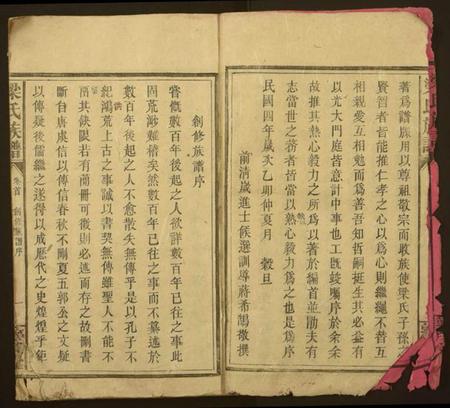 著為譜牒用以尊祖敬宗而收族使梁氏子孫
賢智者皆能推仁孝之心以為心則繼繩不替互
相親愛互相勉而為善吾知哲嗣挺生其必益有
以光大門庭皆意計中事也工既竣囑序於余余
故推其熱心毅力之所為以著於編首並勖夫有
志當世之務者皆當以熱心毅力為之也是為序
民國四年歲次乙卯仲夏月 穀旦
前清歲進士候選訓導蔣希鵠敬撰
梁氏族譜
卷首 創修族譜序
創修族譜序
嘗慨數百年後起之人欲詳數百年已往之事此
固荒渺難稽矣然數百年已往之事而不纂述於
數百年後起之人不愈散失無傳乎是以孔子不
紀鴻荒上古之事誠以書契無傳雖聖人不能不
供其缺限若有簡冊可徵則必述而存之故刪書
斷自唐虞以傳信春秋不刪夏五郭公之文疑
以傳疑後儒繼之遂得以成歷代之史煌煌乎鉅